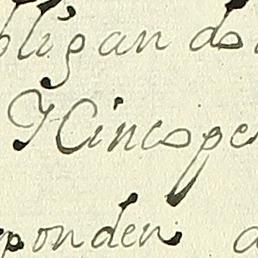 bligan do
Y Cinco pe
ponden a